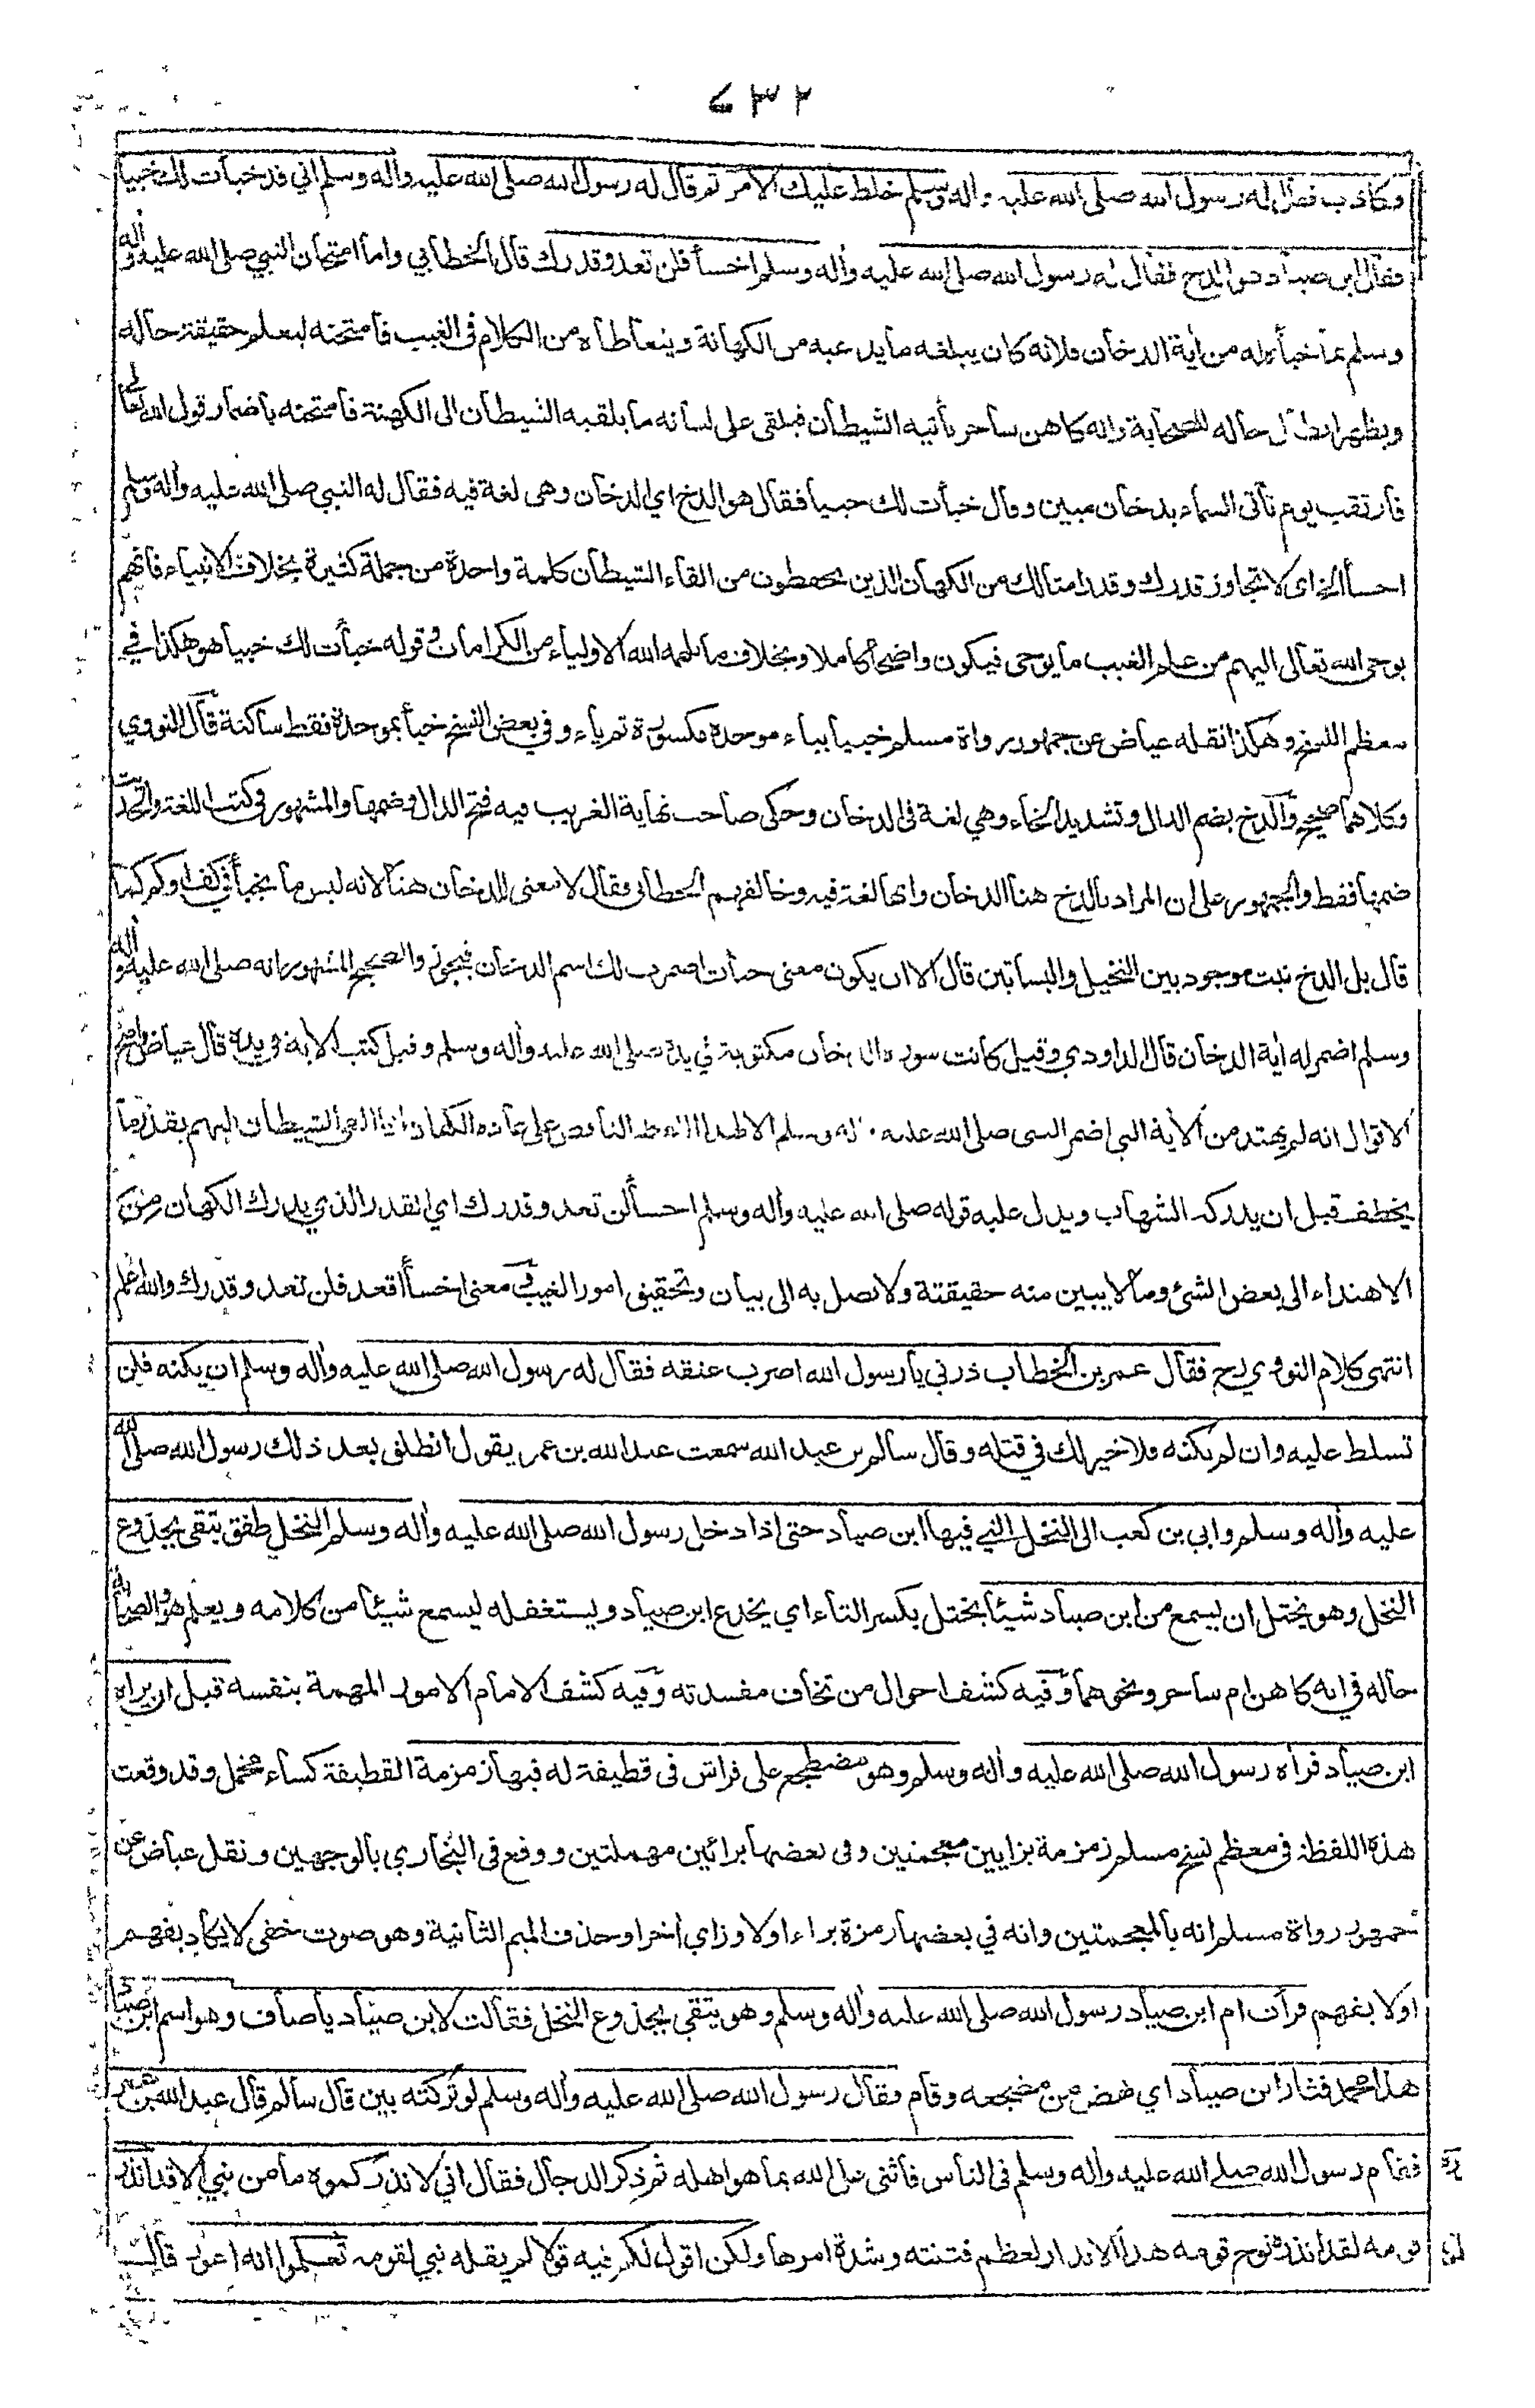 ٧٣٢
وكاذب فقال له رسول الله صلى الله عليه واله وسلم خلط عليك الامر ثم قال له رسول الله صلى الله عليه واله وسلم اني قد خبأت لك خبيا
فقال ابن صياد هو الدخ فقال له رسول الله صلى الله عليه واله وسلم اخسأ فلن تعدو قدرك قال الخطابي واما امتحان النبي صلى الله عليه واله
وسلم بما خبأه له من اية الدخان فلانه كان يبلغه ما يدعيه من الكهانة ويتعاطاه من الكلام في الغيب فامتحنه ليعلم حقيقة حاله
ويظهر ابطال حاله للصحابة وانه كاهن ساحر يأتيه الشيطان فيلقى على لسانه ما يلقيه الشيطان الى الكهنة فامتحنه باضمار قول الله تعالى
فارتقب يوم تأتى السماء بدخان مبين وقال خبأت لك خبيا فقال هو الدخ اي الدخان وهى لغة فيه فقال له النبي صلى الله عليه واله وسلم
اخسأ الخ اى لا تتجاوز قدرك وقدر امثالك من الكهان الذين يحفظون من القاء الشيطان كلمة واحدة من جملة كثيرة بخلاف الانبياء فانهم
يوحى الله تعالى اليهم من علم الغيب ما يوحى فيكون واضحا كاملا وبخلاف ما يلهمه الله الاولياء من الكرامات وقوله خبأت لك خبيا هو هكذا في
معظم النسخ وهكذا نقله عياض عن جمهور رواة مسلم خبيا بباء موحدة مكسورة ثم ياء وفي بعض النسخ خبأ بموحدة فقط ساكنة قال النووي
وكلاهما صحيح والدخ بضم الدال وتشديد الخاء وهي لغة في الدخان وحكى صاحب نهاية الغريب فيه فتح الدال وضمها والمشهور في كتب اللغة والحديث
ضمها فقط والجمهور على ان المراد بالدخ هنا الدخان وانها لغة فيه وخالفهم الخطابي فقال لا معنى للدخان هنا لانه ليس ما يخبأ في كف او كم كما
قال بل الدخ نبت موجود بين النخيل والبساتين قال الا ان يكون معنى خبأت اضمرت لك اسم الدخان فيجوز والصحيح المشهور انه صلى الله عليه واله
وسلم اضمر له اية الدخان قال الداودي وقيل كانت سورة الدخان مكتوبة في يده صلى الله عليه واله وسلم وقيل كتب الاية في يده قال عياض واصح
الاقوال انه لم يهتد من الاية التي اضمر النبى صلى الله عليه واله وسلم الا لهذا اللفظ الناقص على عادة الكهان اذا القى الشيطان اليهم بقدر ما
يخطف قبل ان يدركه الشهاب ويدل عليه قوله صلى الله عليه واله وسلم اخسأ لن تعدو قدرك اي القدر الذي يدرك الكهان من
الاهتداء الى بعض الشئ وما لا يبين منه حقيقتة ولا يصل به الى بيان وتحقيق امور الغيب في معنى اخسأ اقعد فلن تعدو قدرك والله اعلم
انتهى كلام النووي رح فقال عمر بن الخطاب ذرني يا رسول الله اضرب عنقه فقال له رسول الله صلى الله عليه واله وسلم ان يكنه فلن
تسلط عليه وان لم يكنه فلا خير لك في قتله وقال سالم بن عبد الله سمعت عبد الله بن عمر يقول انطلق بعد ذلك رسول الله صلى الله
عليه واله وسلم وابي بن كعب الى النخل التي فيها ابن صياد حتى اذا دخل رسول الله صلى الله عليه واله وسلم النخل طفق يتقى بجذوع
النخل وهو يختل ان يسمع من ابن صياد شيئا يختل بكسر التاء اي يخدع ابن صياد ويستغفله ليسمع شيئا من كلامه ويعلم هو والصحابة
حاله في انه كاهن ام ساحر ونحوهما وفيه كشف احوال من تخاف مفسدته وفيه كشف الامام الامور المهمة بنفسه قبل ان يراه
ابن صياد فراه رسول الله صلى الله عليه واله وسلم وهو مضطجع على فراش في قطيفة له فيها زمزمة القطيفة كساء مخمل وقد وقعت
هذه اللفظة في معظم نسخ مسلم زمزمة بزايين معجمتين وفى بعضها برائين مهملتين ووقع في البخاري بالوجهين ونقل عياض عن
جمهور رواة مسلم انه بالمعجمتين وانه في بعضها رمزة براء اولا وزاي اخرا وحذف الميم الثانية وهو صوت خفى لا يكاد يفهم
اولا يفهم فرأت ام ابن صياد رسول الله صلى الله عليه واله وسلم وهو يتقي بجذوع النخل فقالت لابن صياد يا صاف وهو اسم ابن صياد
هذا محمد فثار ابن صياد اي نهض من مضجعه وقام فقال رسول الله صلى الله عليه واله وسلم لو تركته بين قال سالم قال عبد الله بن عمر
فقام رسول الله صلى الله عليه واله وسلم في الناس فاثنى على الله بما هو اهله ثم ذكر الدجال فقال اني لانذركموه ما من نبي الا قد انذر
قومه لقد انذره نوح قومه هذا الانذار لعظم فتنته وشدة امرها ولكن اقول لكم فيه قولا لم يقله نبي لقومه تعلموا انه اعور قال